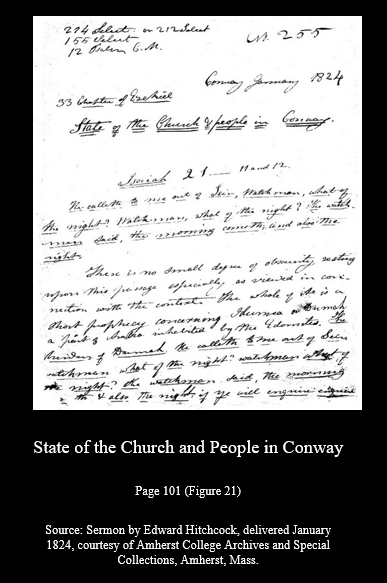 274 Select or 212 Select
155 Select
12 Psalm C.M.
No. 255
Conway January 1824
33 Chapter of Ezekiel
State of the Church & people in Conway.
Isaiah 21 — 11 and 12.
He calleth to me out of Seir, Watchman, what of
the night? Watchman, what of the night? The watch-
man said, the morning cometh, and also the
night.
There is no small degree of obscurity resting
upon this passage especially, as viewed in con-
nection with the context. The whole of it is a
short prophecy concerning Idumea or Dumah
a part of Arabia inhabited by the Edomites. The
burden of Dumah He calleth to me out of Seir
watchman what of the night? watchman what of
the night? the watchman said, the morning
& also the night if ye will enquire enquire
State of the Church and People in Conway
Page 101 (Figure 21)
Source: Sermon by Edward Hitchcock, delivered January
1824, courtesy of Amherst College Archives and Special
Collections, Amherst, Mass.